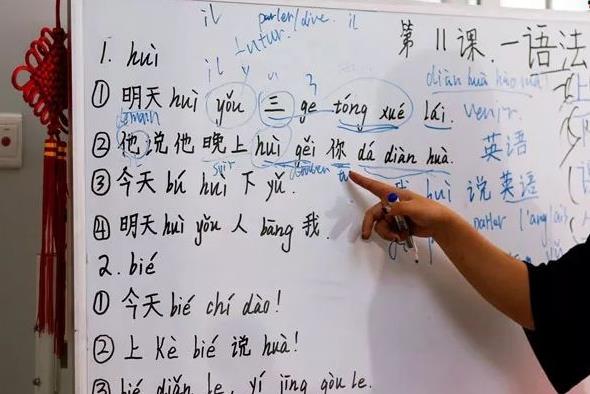 il parler/dire. il
futur.
第 11 课.一语法
1. huì
il y
diàn huà hào mǎ
① 明天 huì yǒu 三 ge tóng xué lái. venir.
demain
② 他说他晚上 huì gěi 你 dá diàn huà. 英语
soir
③ 今天 bú huì 下 yǔ. huì 说英语
parler l'anglais
④ 明天 huì yǒu 人 bāng 我.
2. bié
① 今天 bié chí dào!
② 上 Kè bié 说 huà!
③ bié diǎn le, yí jīng gòu le.